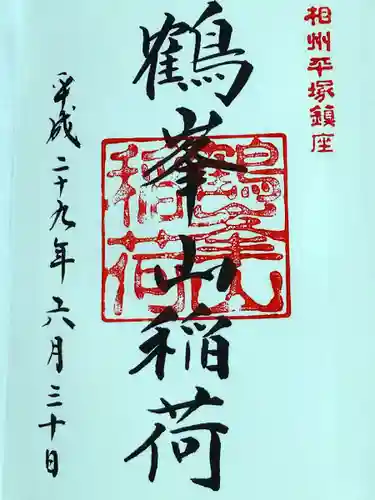 相州平塚鎮座
鶴峯山稲荷
平成二十九年六月三十日